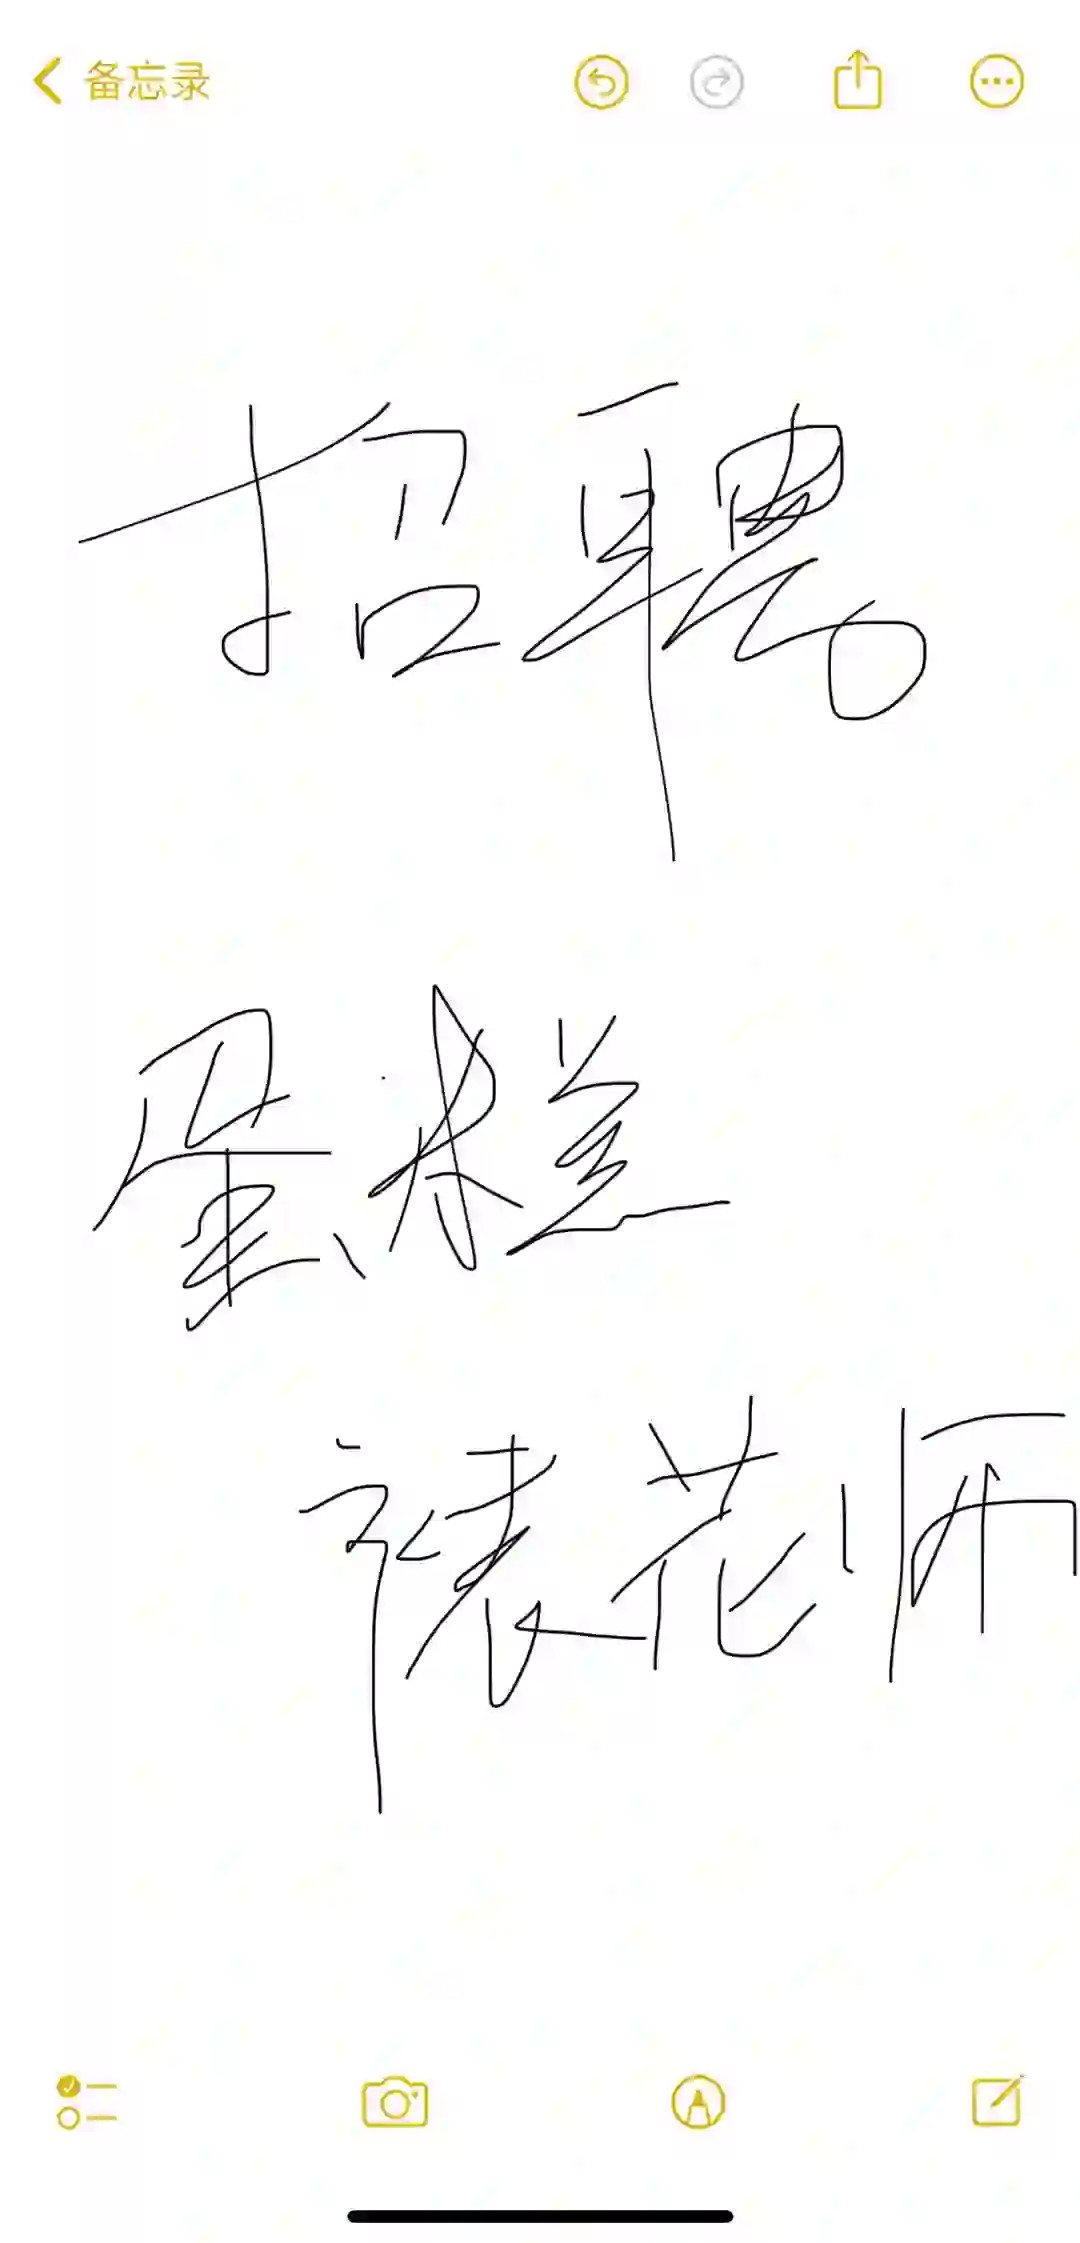 备忘录
招聘。
蛋糕
裱花师